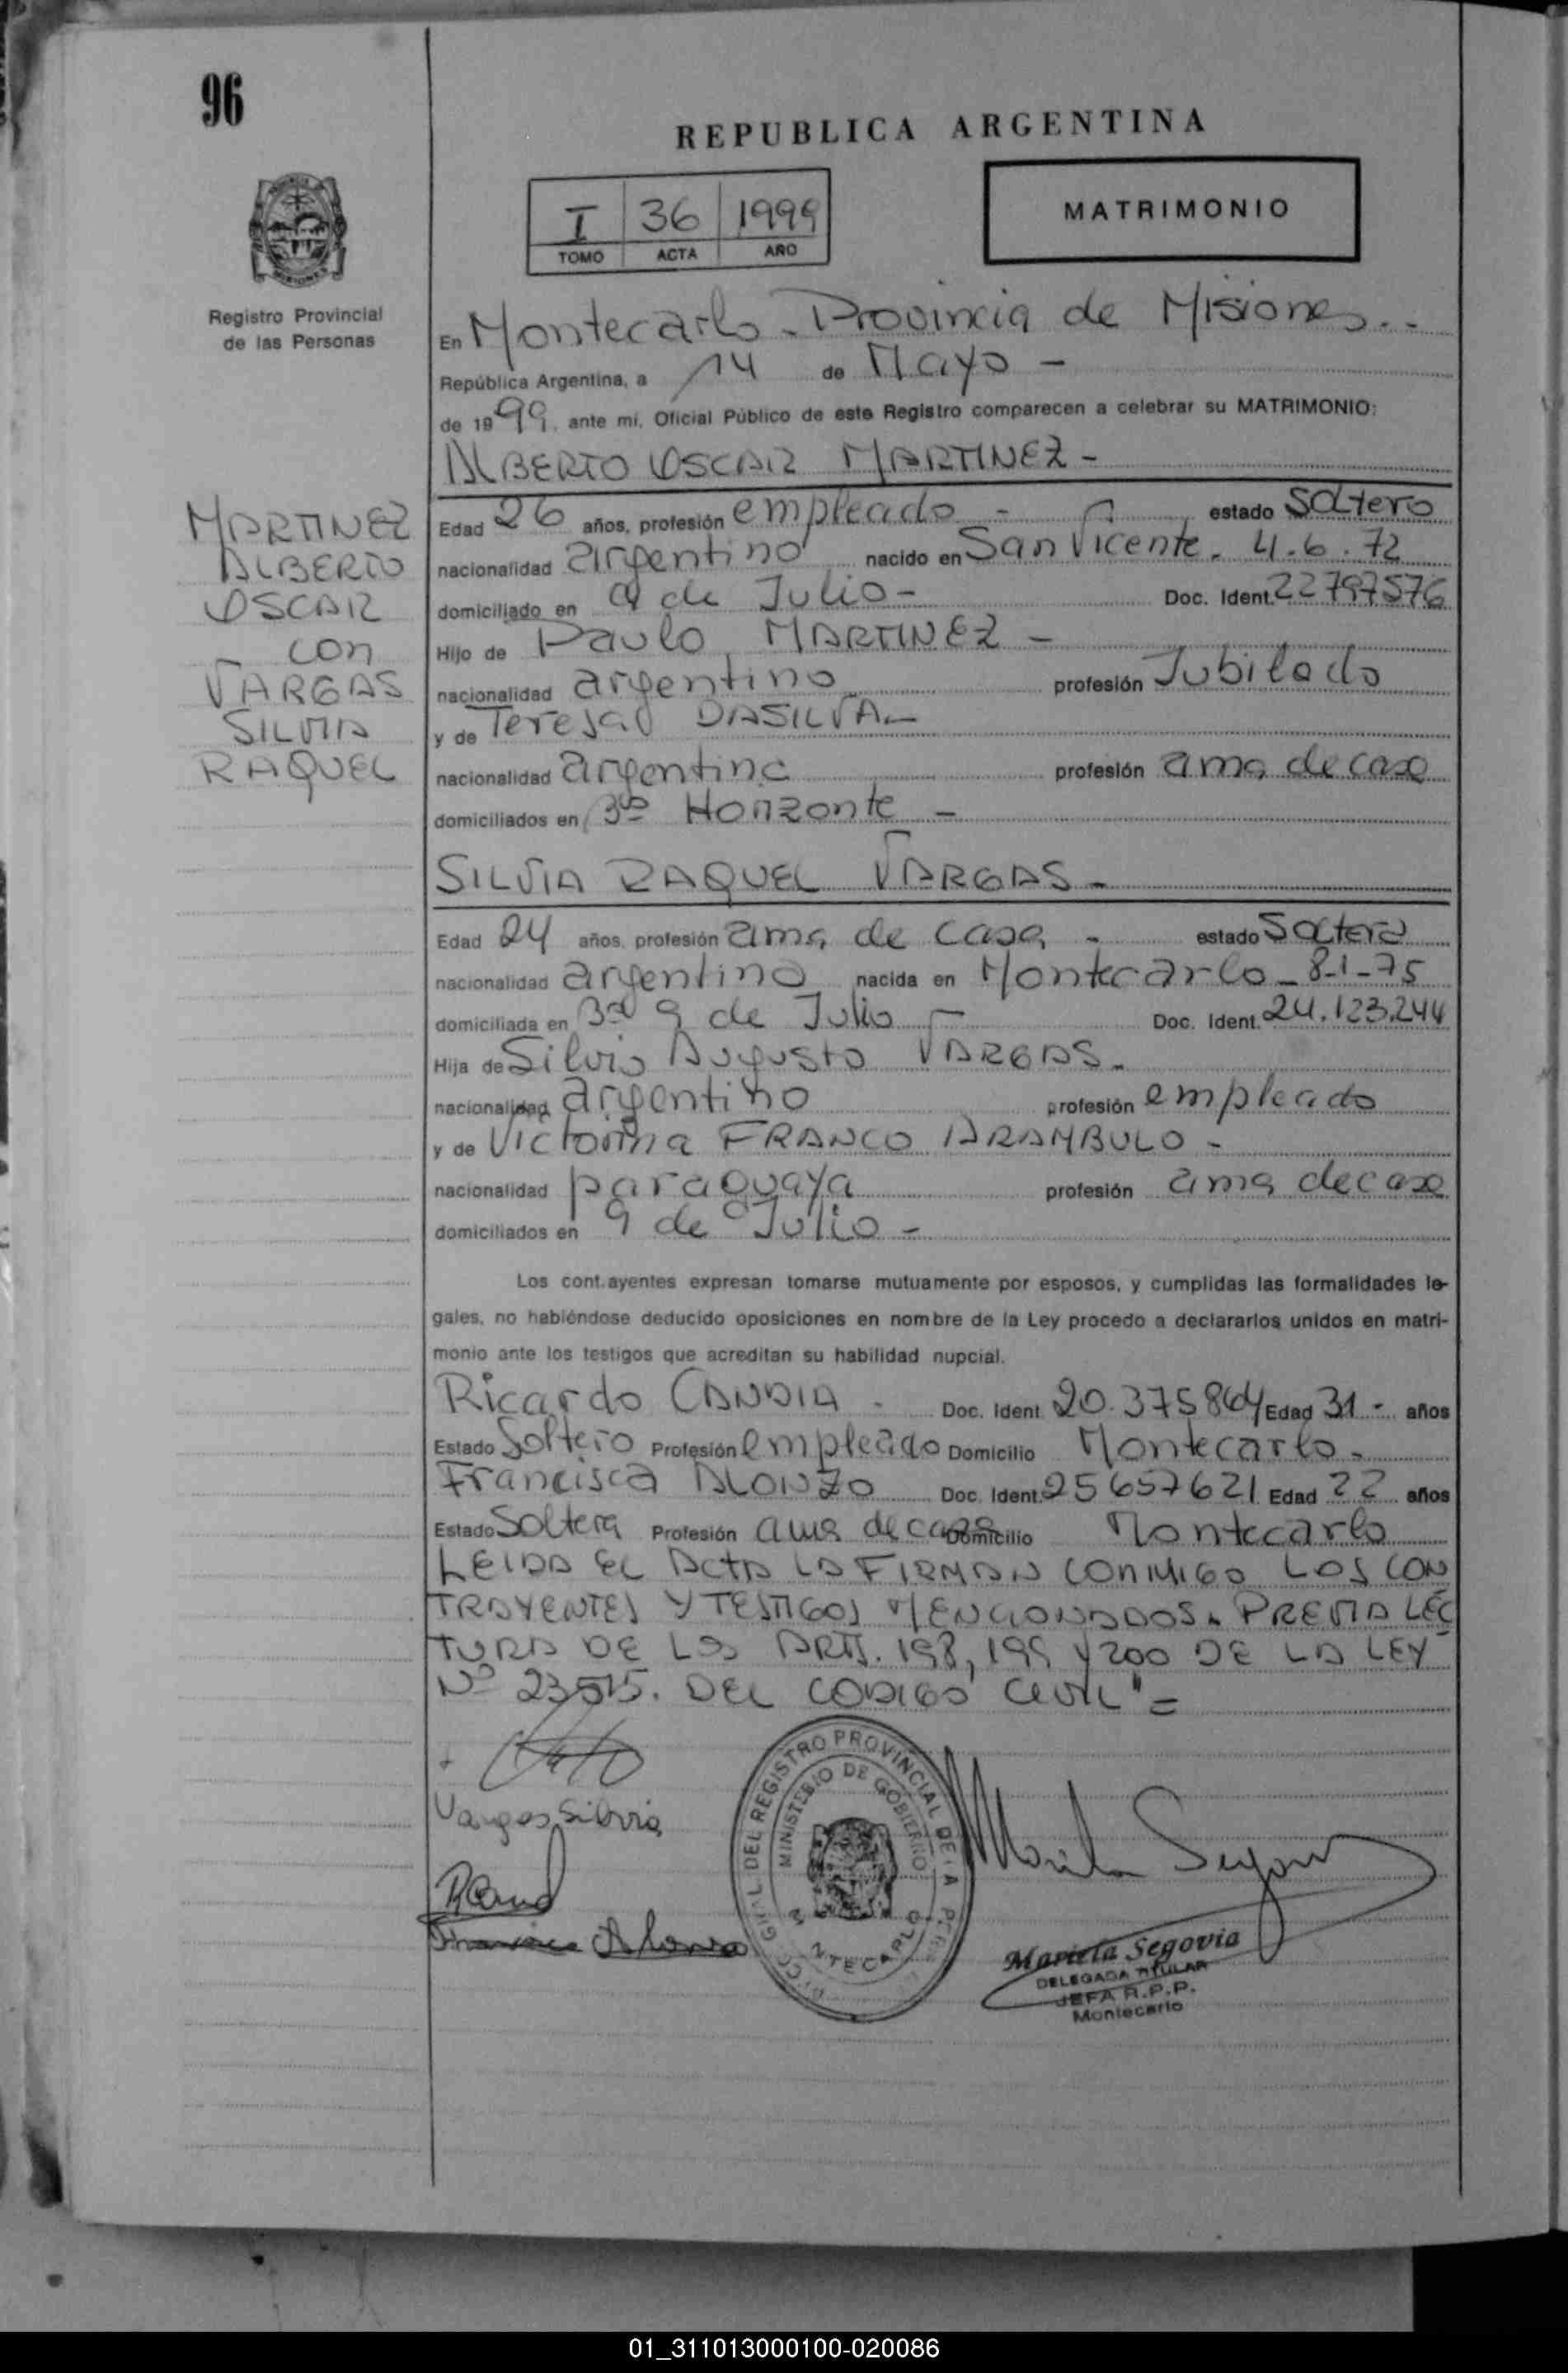 96
REPUBLICA ARGENTINA
I 36 1999
TOMO ACTA AÑO
MATRIMONIO
Registro Provincial
de las Personas
En Montecarlo - Provincia de Misiones --
República Argentina, a 14 de Mayo -
de 1999, ante mí, Oficial Público de este Registro comparecen a celebrar su MATRIMONIO:
ALBERTO OSCAR MARTINEZ -
MARTINEZ
ALBERTO
OSCAR
con
VARGAS
SILVIA
RAQUEL
Edad 26 años, profesión empleado - estado Soltero
nacionalidad argentino nacido en San Vicente. 4.6.72
domiciliado en 9 de Julio - Doc. Ident. 22797576
Hijo de Paulo MARTINEZ -
nacionalidad argentino profesión Jubilado
y de Teresa DASILVA -
nacionalidad argentina profesión ama de casa
domiciliados en Bº Horizonte -
SILVIA RAQUEL VARGAS -
Edad 24 años, profesión ama de casa - estado Soltera
nacionalidad argentina nacida en Montecarlo - 8-1-75
domiciliada en Bº 9 de Julio - Doc. Ident. 24.123.244
Hija de Silvio Augusto VARGAS -
nacionalidad argentino profesión empleado
y de Victorina FRANCO ARAMBULO -
nacionalidad paraguaya profesión ama de casa
domiciliados en 9 de Julio -
Los cont.ayentes expresan tomarse mutuamente por esposos, y cumplidas las formalidades le-
gales, no habiéndose deducido oposiciones en nombre de la Ley procedo a declararlos unidos en matri-
monio ante los testigos que acreditan su habilidad nupcial.
Ricardo CANDIA - Doc. Ident. 20.375864 Edad 31 - años
Estado Soltero Profesión empleado Domicilio Montecarlo -
Francisca ALONZO Doc. Ident. 25657621 Edad 22 años
Estado Soltera Profesión ama de casa Domicilio Montecarlo
LEIDA EL ACTA LA FIRMAN CONMIGO LOS CON
TRAYENTES Y TESTIGOS MENCIONADOS. PREVIA LEC
TURA DE LOS ARTS. 198, 199 Y 200 DE LA LEY
Nº 23515. DEL CODIGO CIVIL" =
Vargas Silvia
OFICIAL DEL REGISTRO PROVINCIAL DE LA PERS
MINISTERIO DE GOBIERNO
MONTECARLO
Mariela Segovia
Francisca Alonzo
Mariela Segovia
DELEGADA TITULAR
JEFA R.P.P.
Montecarlo
01_311013000100-020086